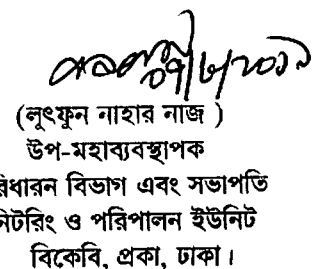 (লুৎফুন নাহার নাজ )
উপ-মহাব্যবস্থাপক
রিধারন বিভাগ এবং সভাপতি
নিটরিং ও পরিপালন ইউনিট
বিকেবি, প্রকা, ঢাকা।